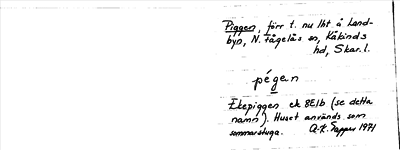 Piggen, förr t. nu lht å Land-
byn, N. Fågelås sn, Kåkinds
hd, Skar. l.
pégen
Ekepiggen ek 8E1b (se detta
namn). Huset används som
sommarstuga. A-K. Tapper 1971